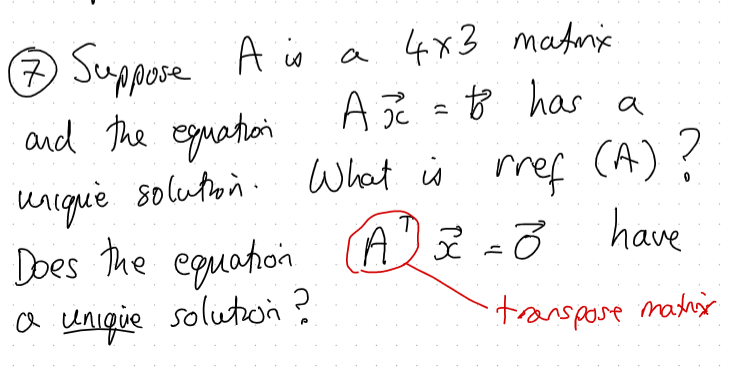 ⑦ Suppose A is a 4x3 matrix
and the equation A x⃗ = b⃗ has a
unique solution. What is rref (A)?
Does the equation Aᵀ x⃗ = 0⃗ have
a unique solution?
transpose matrix